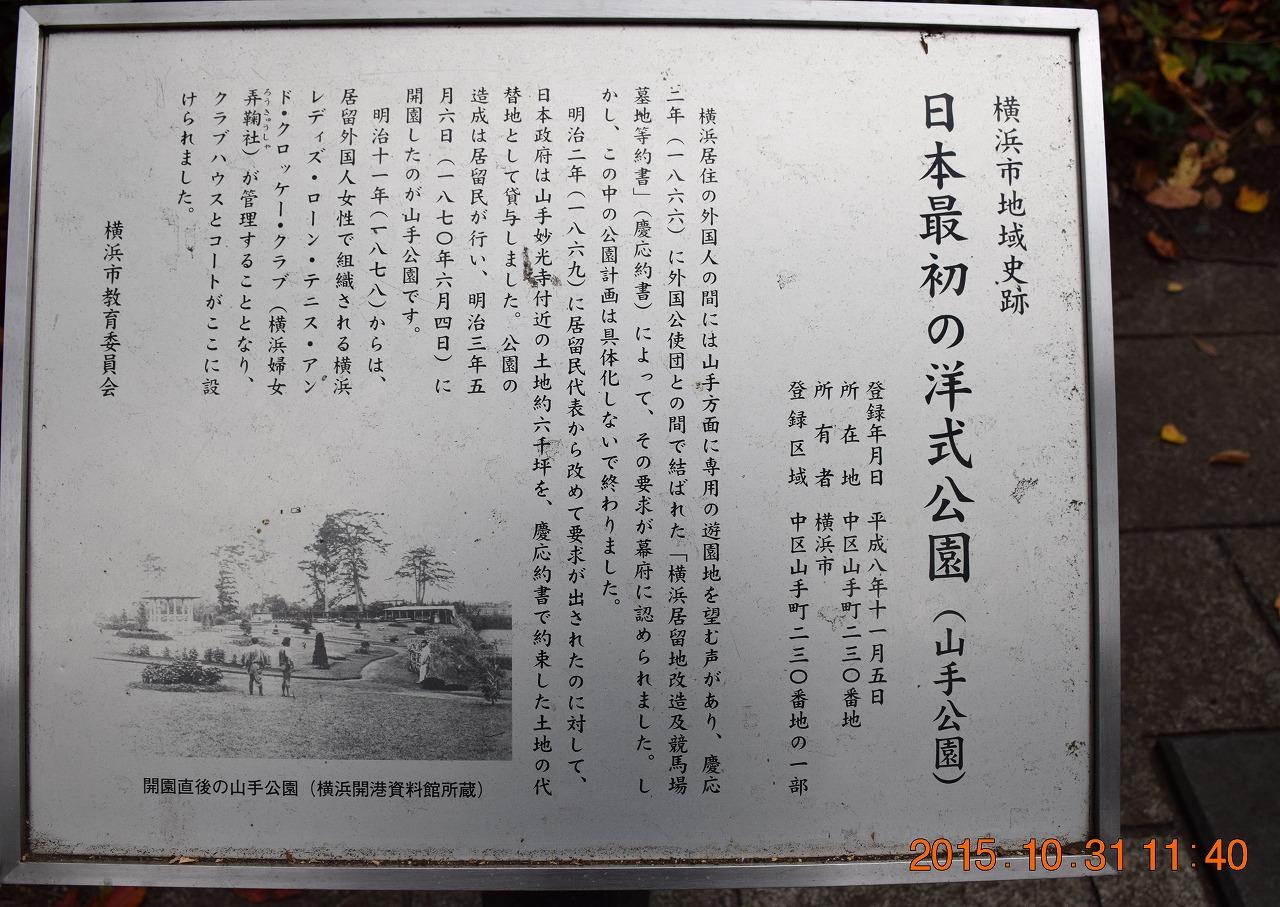 横浜市地域史跡
日本最初の洋式公園（山手公園）
登録年月日　平成八年十一月五日
所在地　中区山手町二三〇番地
所有者　横浜市
登録区域　中区山手町二三〇番地の一部
横浜居住の外国人の間には山手方面に専用の遊園地を望む声があり、慶応
二年（一八六六）に外国公使団との間で結ばれた「横浜居留地改造及競馬場
墓地等約書」（慶応約書）によって、その要求が幕府に認められました。し
かし、この中の公園計画は具体化しないで終わりました。
明治二年（一八六九）に居留民代表から改めて要求が出されたのに対して、
日本政府は山手妙光寺付近の土地約六千坪を、慶応約書で約束した土地の代
替地として貸与しました。公園の
造成は居留民が行い、明治三年五
月六日（一八七〇年六月四日）に
開園したのが山手公園です。
明治十一年（一八七八）からは、
居留外国人女性で組織される横浜
レディズ・ローン・テニス・アン
ド・クロッケー・クラブ（横浜婦女
弄鞠社）が管理することとなり、
ろうきゅうしゃ
クラブハウスとコートがここに設
けられました。
横浜市教育委員会
開園直後の山手公園（横浜開港資料館所蔵）
2015.10.31 11:40